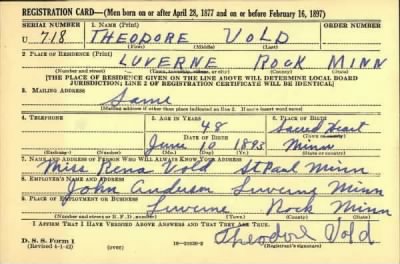 REGISTRATION CARD—(Men born on or after April 28, 1877 and on or before February 16, 1897)
SERIAL NUMBER 1. NAME (Print) ORDER NUMBER
U 718 THEODORE VOLD
(First) (Middle) (Last)
2. PLACE OF RESIDENCE (Print)
LUVERNE ROCK MINN
(Number and street) (Town, township, village, or city) (County) (State)
[THE PLACE OF RESIDENCE GIVEN ON THE LINE ABOVE WILL DETERMINE LOCAL BOARD
JURISDICTION; LINE 2 OF REGISTRATION CERTIFICATE WILL BE IDENTICAL]
3. MAILING ADDRESS
Same
[Mailing address if other than place indicated on line 2. If same insert word same]
4. TELEPHONE 5. AGE IN YEARS 6. PLACE OF BIRTH
48 Sacred Heart
DATE OF BIRTH (Town or county)
June 10 1893 Minn
(Exchange) (Number) (Mo.) (Day) (Yr.) (State or country)
7. NAME AND ADDRESS OF PERSON WHO WILL ALWAYS KNOW YOUR ADDRESS
Miss Rena Vold St Paul Minn
8. EMPLOYER'S NAME AND ADDRESS
John Anderson Luverne Minn
9. PLACE OF EMPLOYMENT OR BUSINESS
Luverne Rock Minn
(Number and street or R. F. D. number) (Town) (County) (State)
I AFFIRM THAT I HAVE VERIFIED ABOVE ANSWERS AND THAT THEY ARE TRUE.
D. S. S. Form 1 Theodore Vold
(Revised 4-1-42) (over) (Registrant's signature)